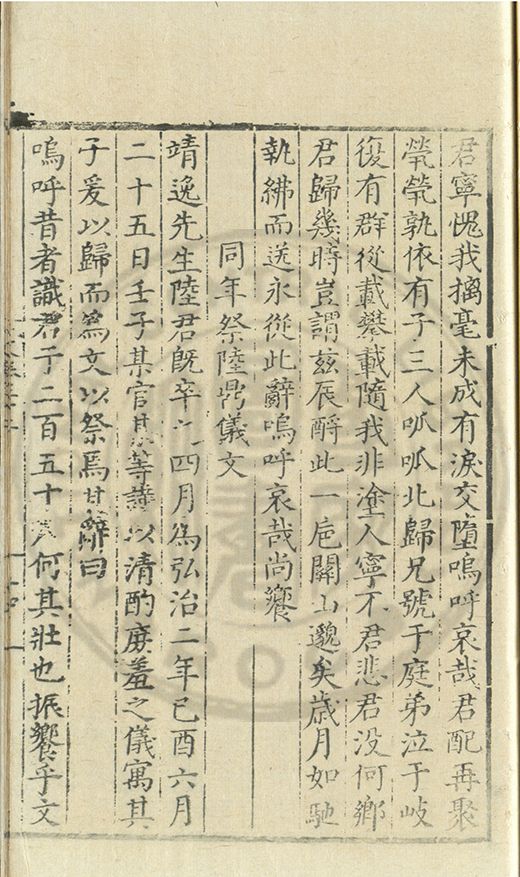 君寧愧我摛毫未成有淚交墮嗚呼哀哉君配再聚
煢煢孰依有子三人呱呱北歸兄號于庭弟泣于岐
復有群從載攀載隨我非塗人寧不君悲君没何鄉
君歸幾時豈謂茲辰酹此一巵關山邈矣歲月如馳
執紼而送永從此辭嗚呼哀哉尚饗
同年祭陸鼎儀文
靖逸先生陸君既卒 四月為弘治二年己酉六月
二十五日壬子某官某等謹以清酌庶羞之儀寓其
子爰以歸而為文以祭焉其辭曰
嗚呼昔者識君于二百五十人何其壯也振響乎文